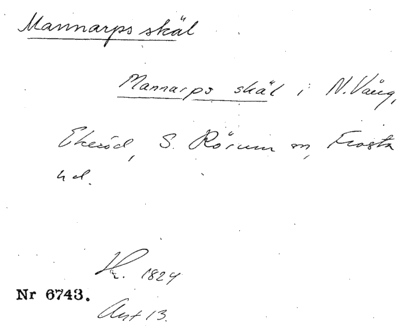 Mannarps skäl
Mannarps skäl i N. Vång,
Ekeröd, S. Rörum m, Frosta
hd.
K. 1824
Nr 6743.
Avs 13.